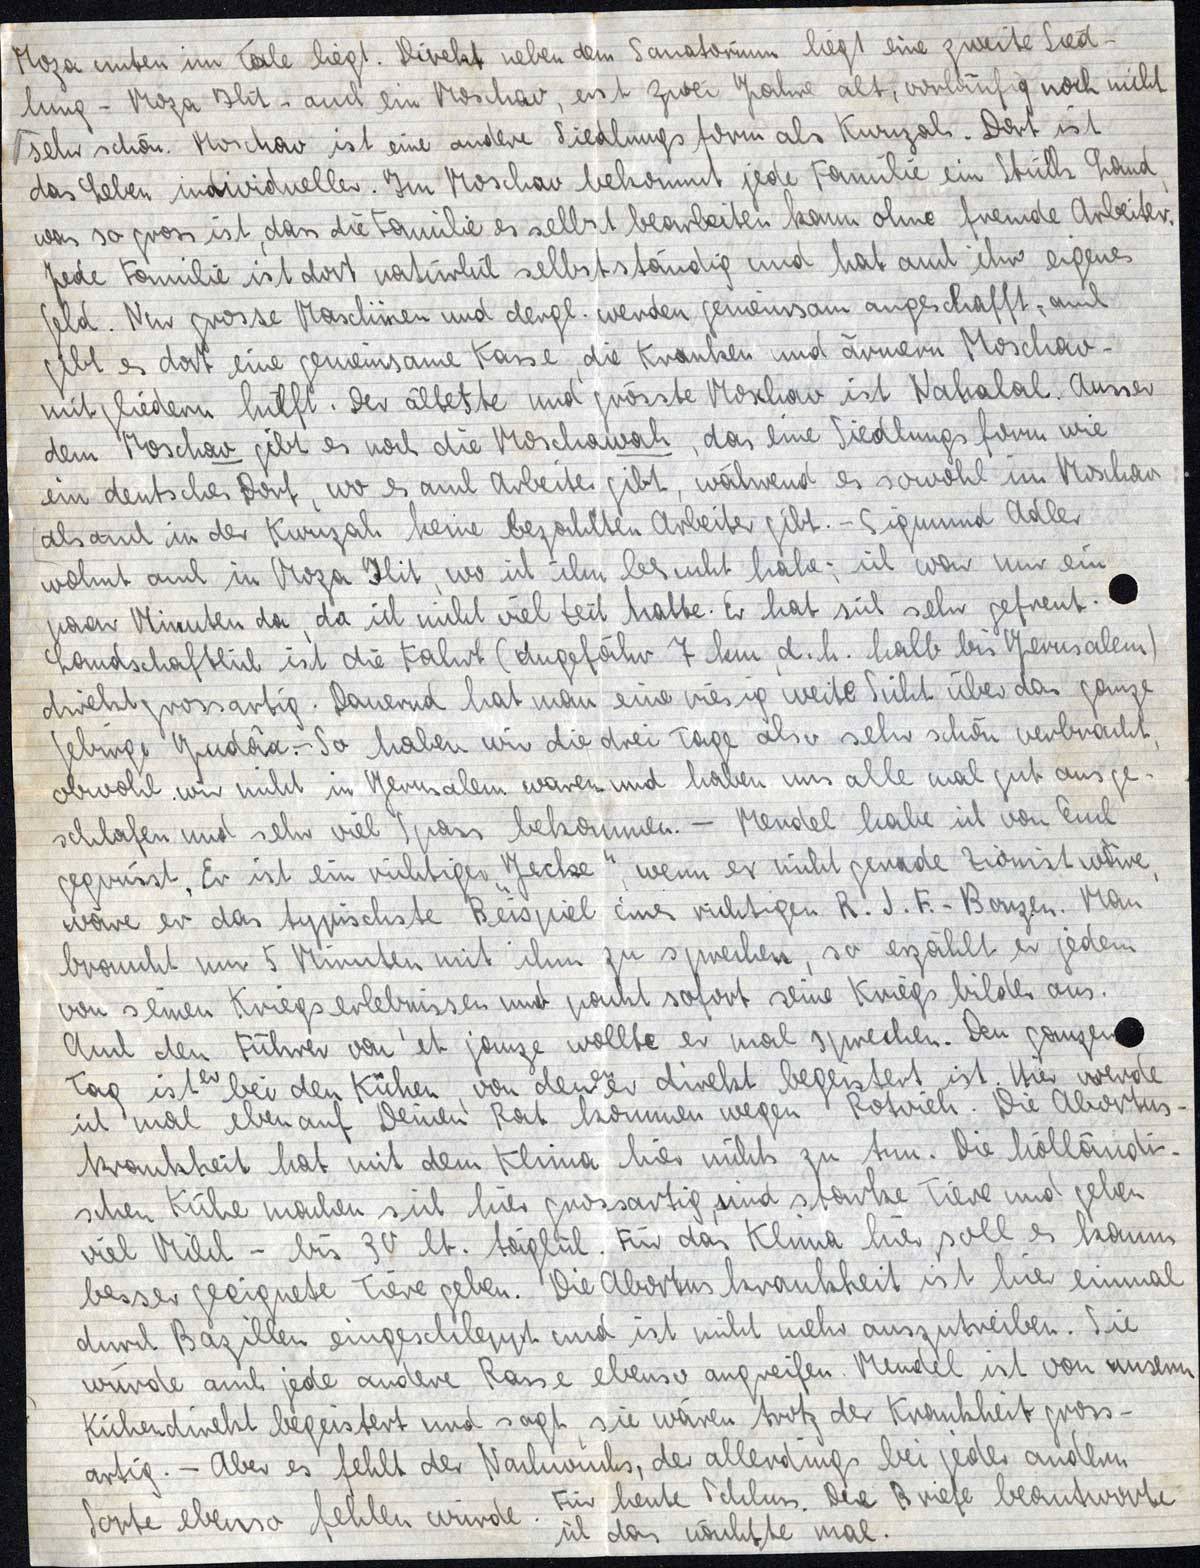 Moza unten im Tale liegt. Direkt neben dem Sanatorium liegt eine zweite Sied-
lung - Moza Ilit - auch ein Moschav, erst zwei Jahre alt, vorläufig noch nicht
sehr schön. Moschav ist eine andere Siedlungsform als Kwuzah. Dort ist
das Leben individueller. Im Moschav bekommt jede Familie ein Stück Land,
was so gross ist, dass die Familie es selbst bearbeiten kann ohne fremde Arbeiter.
Jede Familie ist dort natürlich selbstständig und hat auch ihr eigenes
Geld. Nur grosse Maschinen und dergl. werden gemeinsam angeschafft, auch
gibt es dort eine gemeinsame Kasse, die Kranken und ärmern Moschav-
mitgliedern hilft. Der älteste und grösste Moschav ist Nahalal. Ausser
dem Moschav gibt es noch die Moschawah, das eine Siedlungsform wie
ein deutsches Dorf, wo es auch Arbeiter gibt, während es sowohl im Moschav
als auch in der Kwuzah keine bezahlten Arbeiter gibt. - Sigmund Adler
wohnt auch in Moza Ilit, wo ich ihn besucht habe; ich war nur ein
paar Minuten da, da ich nicht viel Zeit hatte. Er hat sich sehr gefreut.
Landschaftlich ist die Fahrt (ungefähr 7 km, d.h. halb bis Jerusalem)
direkt grossartig. Dauernd hat man eine riesig weite Sicht über das ganze
Gebirge Judäa. - So haben wir die drei Tage also sehr schön verbracht,
obwohl wir nicht in Jerusalem waren und haben uns alle mal gut ausge-
schlafen und sehr viel Spass bekommen. - Mendel habe ich von Euch
gegrüsst. Er ist ein richtiger „Jecke“, wenn er nicht gerade Zionist wäre,
wäre er das typischste Beispiel eines richtigen R.J.F.-Bonzen. Man
braucht nur 5 Minuten mit ihm zu sprechen, so erzählt er jedem
von seinen Kriegserlebnissen und packt sofort seine Kriegsbilder aus.
Auch den Führer von 'et janze wollte er mal sprechen. Den ganzen
Tag ist er bei den Kühen, von denen er direkt begeistert ist. Hier werde
ich mal eben auf Deinen Rat kommen wegen Rotvieh. Die Abortus-
krankheit hat mit dem Klima hier nichts zu tun. Die holländi-
schen Kühe machen sich hier grossartig, sind starke Tiere und geben
viel Milch - bis 30 lt. täglich. Für das Klima hier soll es kaum
besser geeignete Tiere geben. Die Abortuskrankheit ist hier einmal
durch Bazillen eingeschleppt und ist nicht mehr auszutreiben. Sie
würde auch jede andere Rasse ebenso angreifen. Mendel ist von unsern
Kühen direkt begeistert und sagt, sie wären trotz der Krankheit gross-
artig. - Aber es fehlt der Nachwuchs, der allerdings bei jeder andern
Sorte ebenso fehlen würde. Für heute Schluss. Die Briefe beantworte
ich das nächste mal.